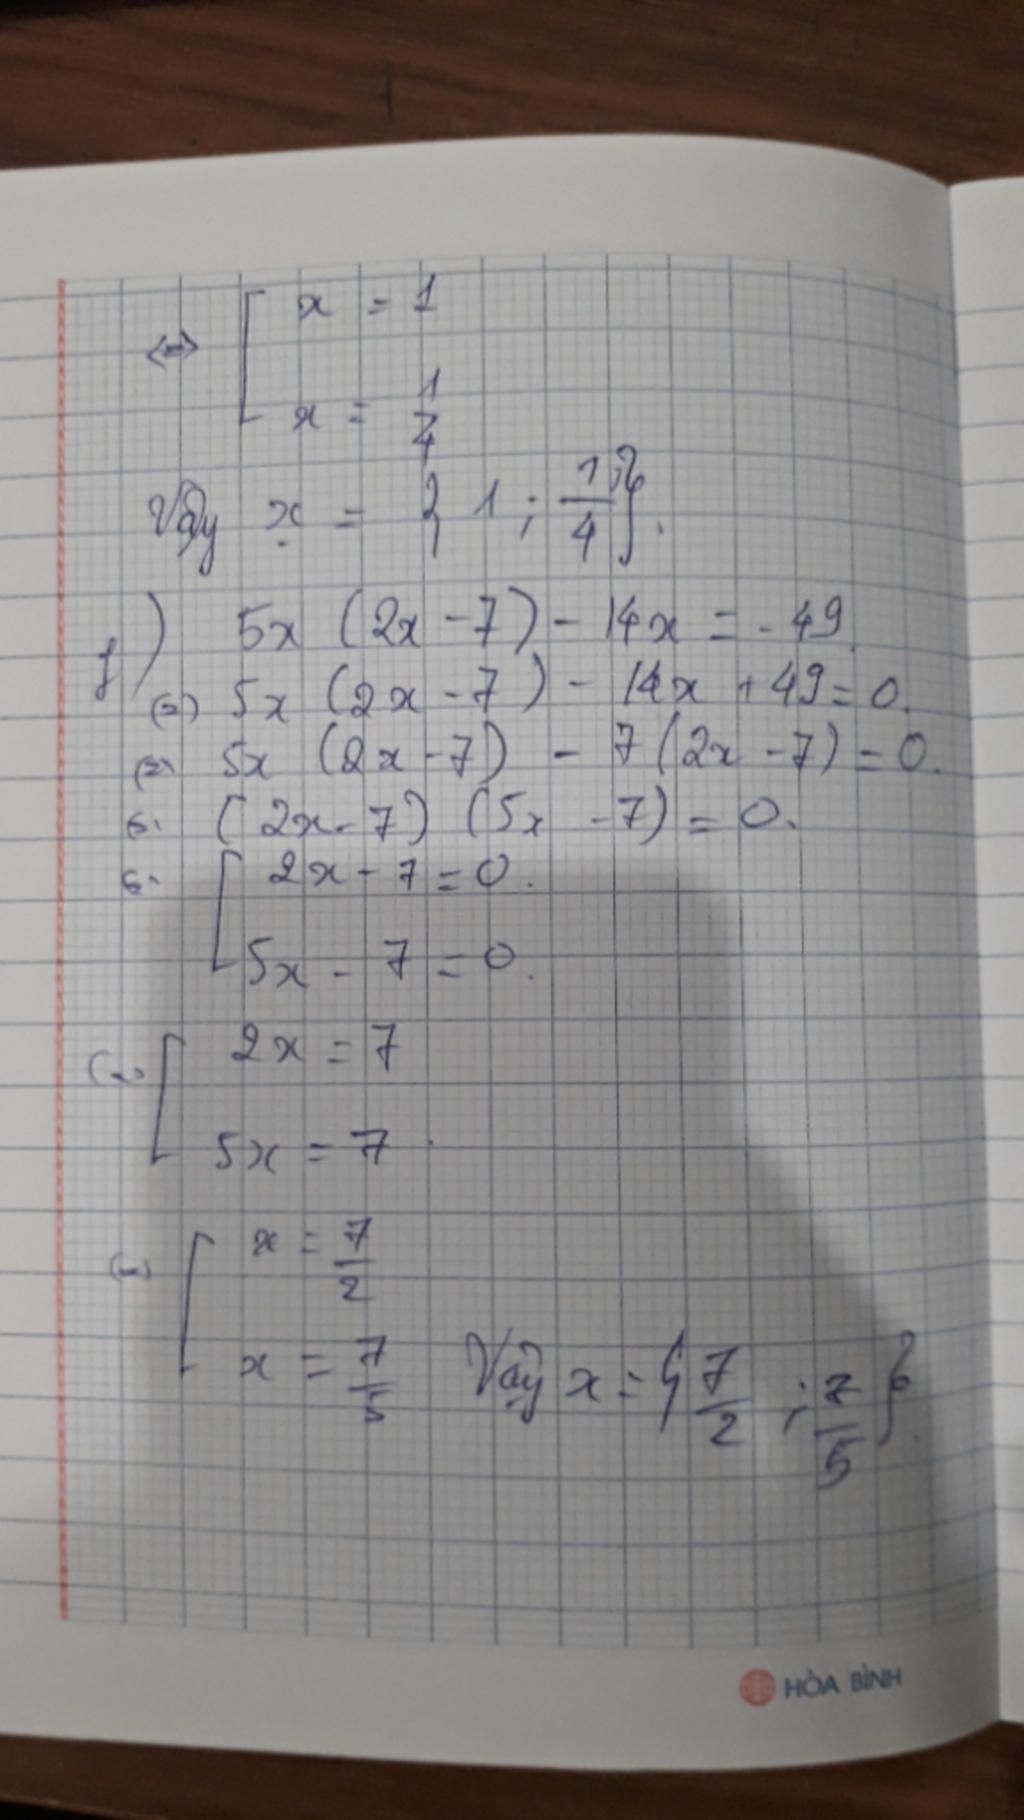 <=> [ x = 1
x = 1/4
Vậy x = { 1 ; 1/4 }.
f) 5x (2x - 7) - 14x = - 49
(=) 5x (2x - 7) - 14x + 49 = 0.
(=) 5x (2x - 7) - 7 (2x - 7) = 0.
(2x - 7) (5x - 7) = 0.
[ 2x - 7 = 0.
5x - 7 = 0.
[ 2x = 7
5x = 7
(=) [ x = 7/2
x = 7/5 Vậy x = { 7/2 ; 7/5 }
HÒA BÌNH